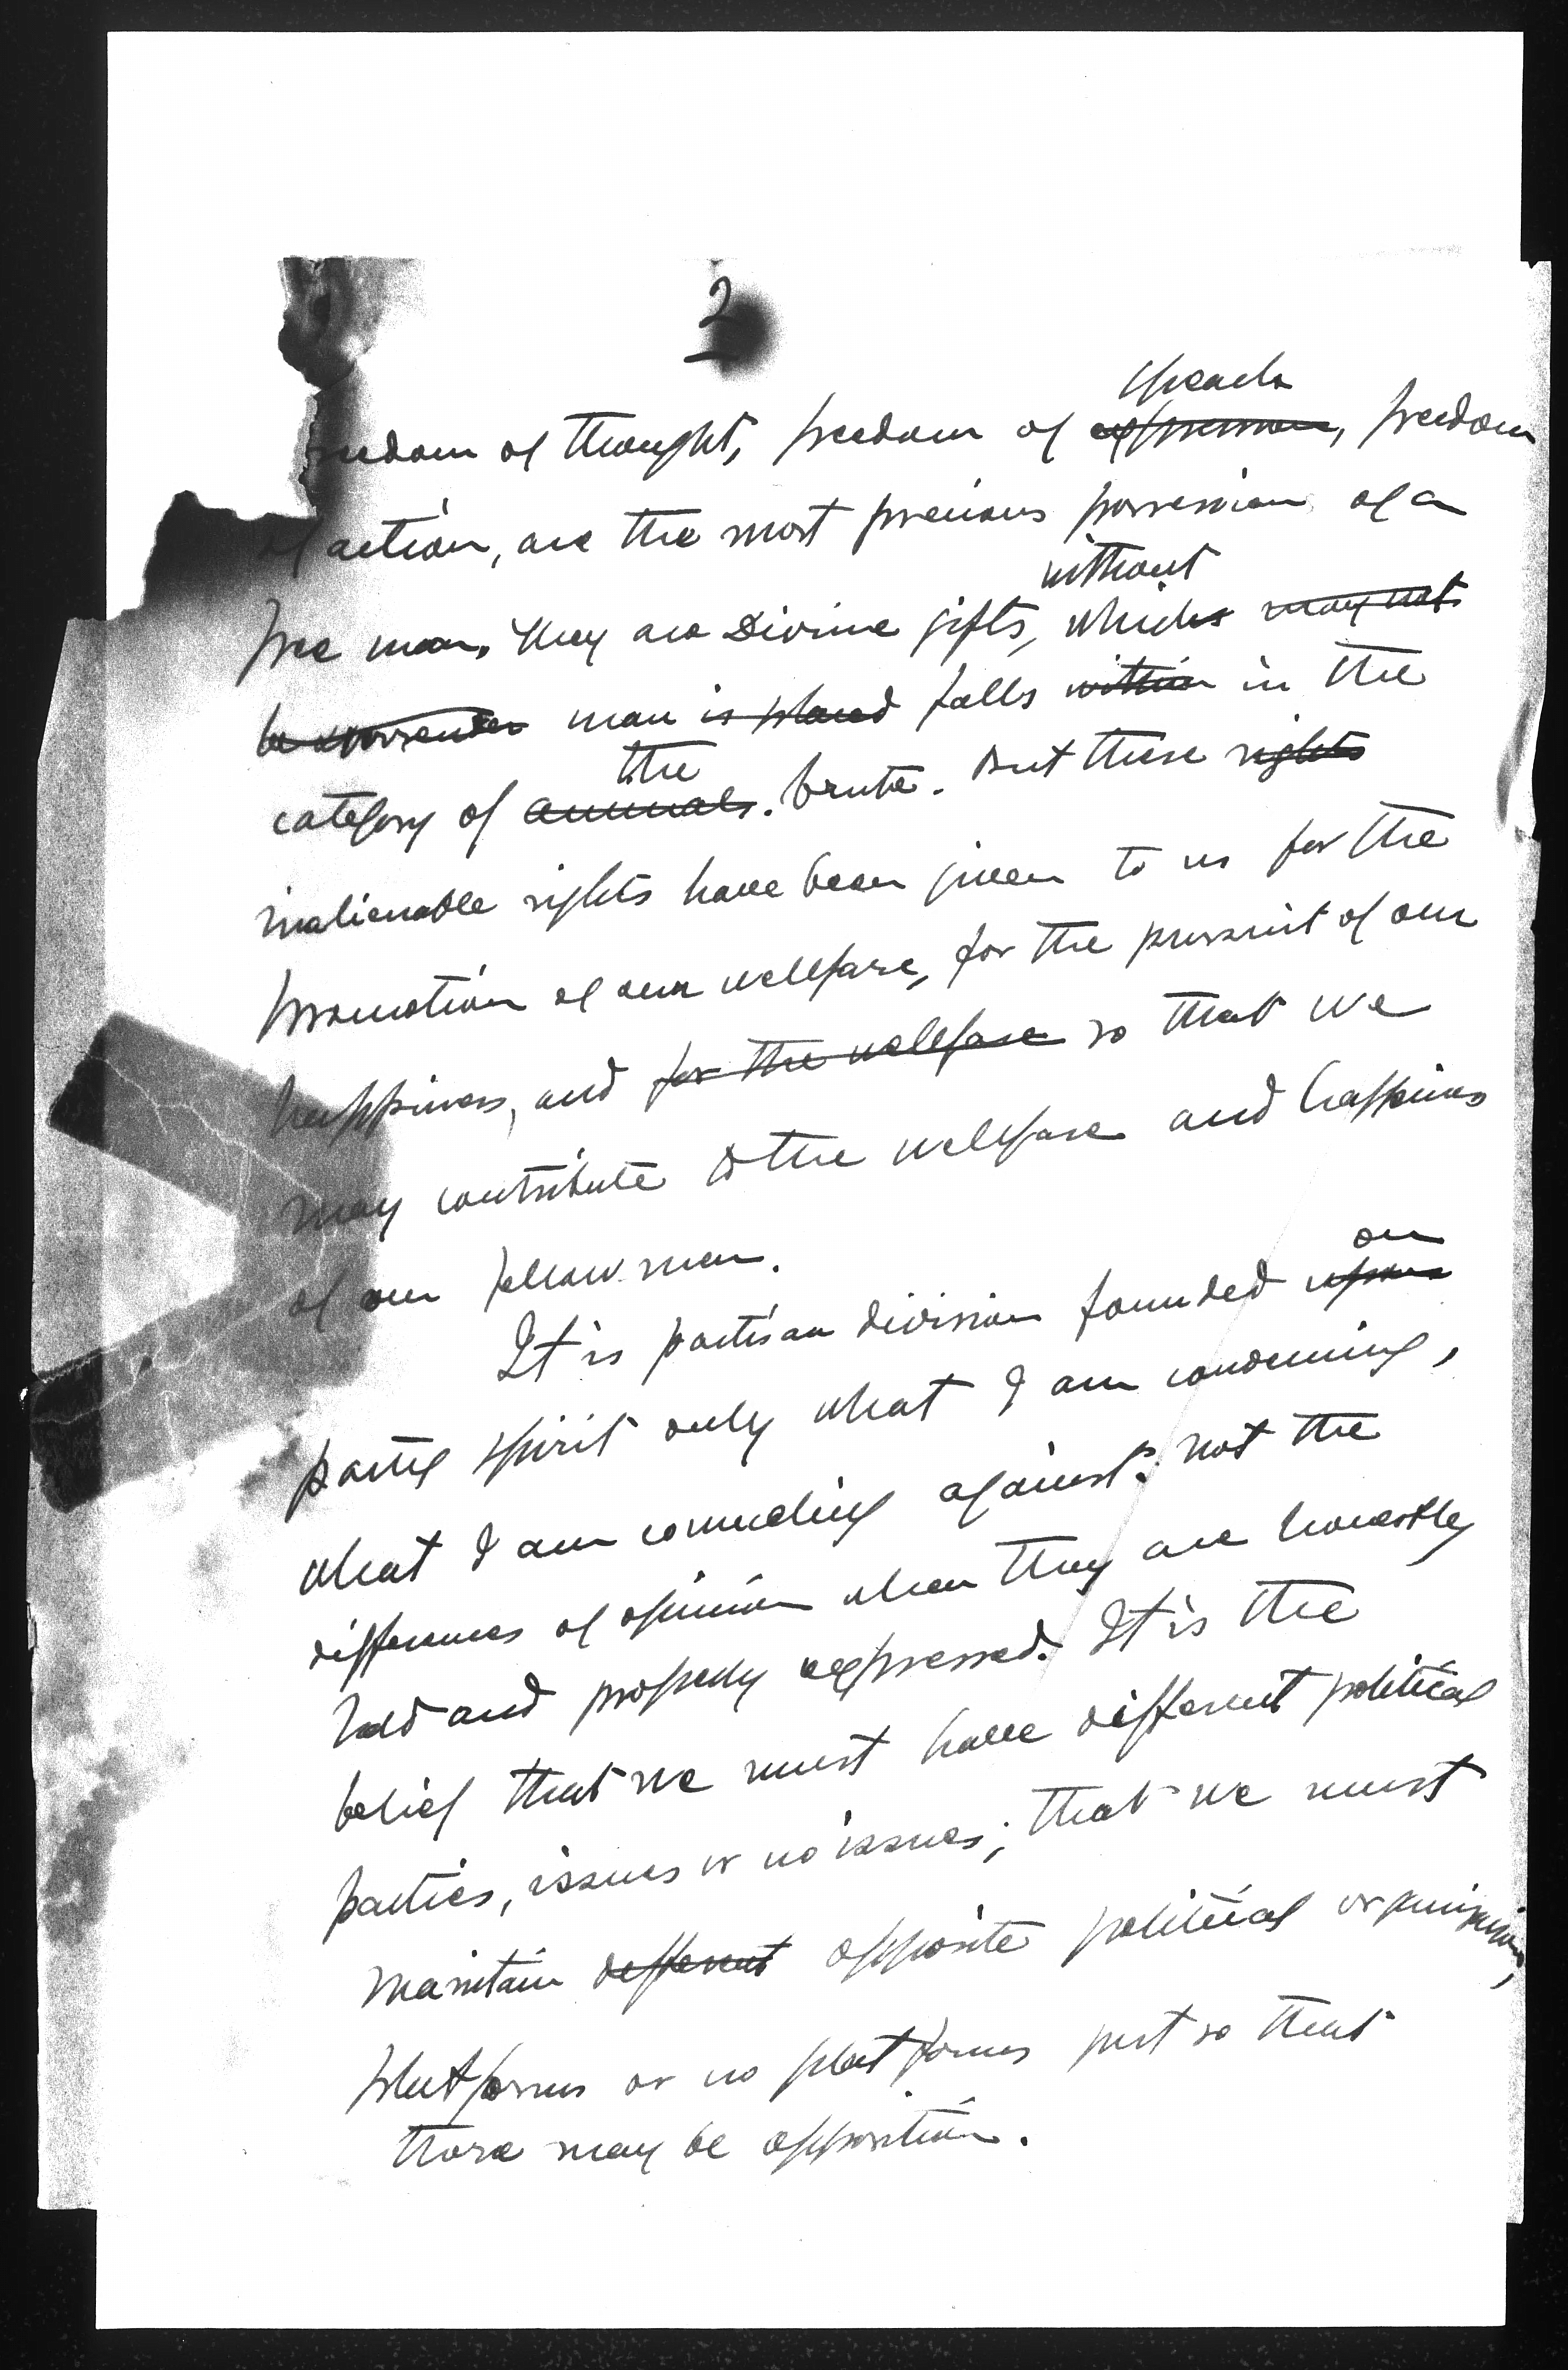 2
speech
freedom of thought, freedom of expression, freedom
of action, are the most precious possession of a
without
free man. They are Divine gifts, which may not
be surrender man is placed falls within in the
the
category of animals. brute. But these rights
inalienable rights have been given to us for the
promotion of our wellfare, for the pursuit of our
happiness, and for the wellfare so that we
may contribute to the wellfare and happiness
of our fellow men.
on
It is partisan division founded upon
party spirit only what I am condemning,
what I am counseling against; not the
differences of opinion when they are honestly
held and properly expressed. It is the
belief that we must have different political
parties, issues or no issues; that we must
maintain different opposite political organizations,
platforms or no platforms just so that
there may be opposition.